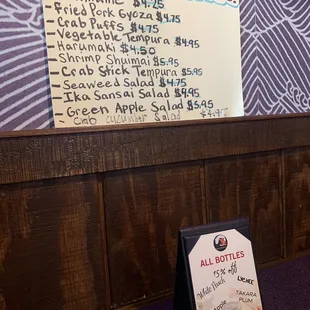 $4.25
Fried Pork Gyoza $4.75
- Crab Puffs $4.75
- Vegetable Tempura $4.95
- Harumaki $4.50
- Shrimp Shumai $5.95
- Crab Stick Tempura $5.95
- Seaweed Salad $4.75
- Ika Sansai Salad $4.95
- Green Apple Salad $5.95
- Crab cucumber Salad $4.95
ALL BOTTLES
15% off
White Peach
LYCHEE
TAKARA
PLUM
Apple